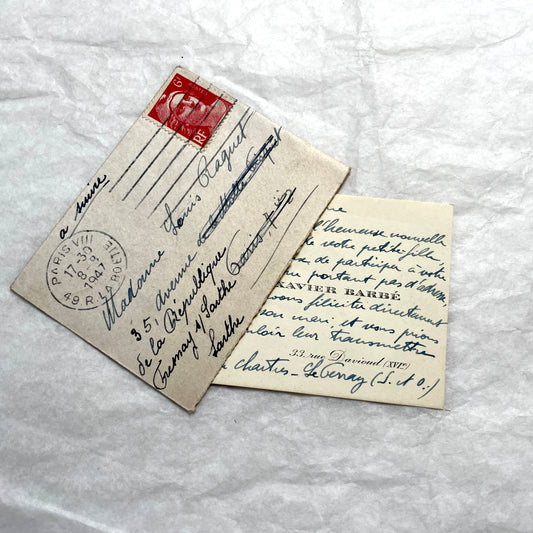 6
RF
a suivre
PARIS VIII
17-30
8
1947
49 R. LA BOËTIE
Madame Louis Raguet
35, avenue
de la République
Fresnay s/ Sarthe
Sarthe
Paris,
l'heureuse nouvelle
de votre petite fille,
de participer à votre
portant pas d'adresse
XAVIER BARBÉ
vous féliciter directement
son mari, et vous prions
loir leur transmettre
33, rue Davioud (XVIe)
chartres - Le Pernay (S. et O.)